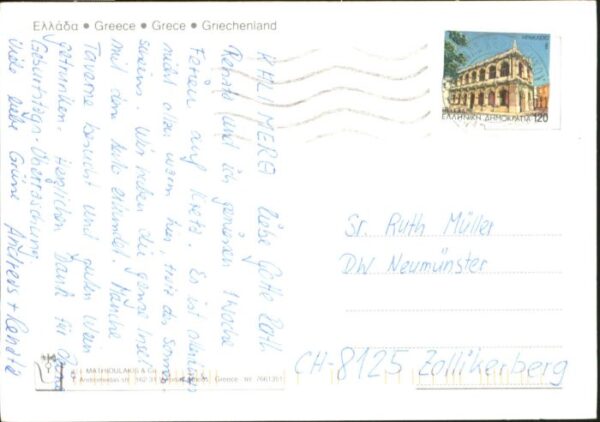 Ελλάδα • Greece • Grece • Griechenland
ΗΡΑΚΛΕΙΟ
ΕΛΛΗΝΙΚΗ ΔΗΜΟΚΡΑΤΙΑ 120
KALIMERA liebe Gotte Ruth
Renate und ich geniessen 1 Woche
Ferien auf Kreta. Es ist
nicht warm hier, trotz des Sonnen-
scheins. Wir haben die ganze Insel
mit dem Auto erkundet. Manche
Taverne besucht und guten Wein
getrunken. Herzlichen Dank für Deine
Geburtstags-Überraschung
Viele liebe Grüsse Andreas + Renate
Sr. Ruth Müller
DW Neumünster
CH-8125 Zollikerberg
MATHIOULAKIS & Co
Greece